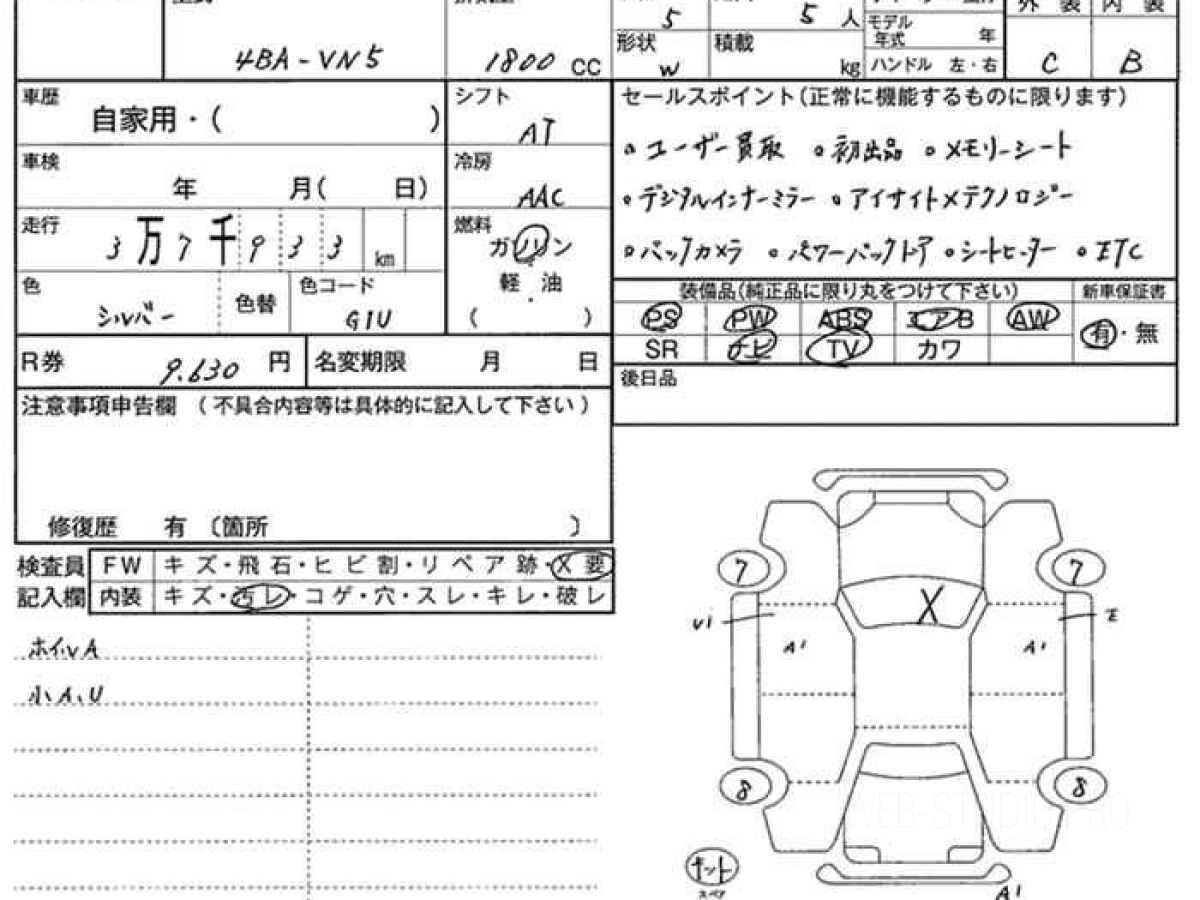 4BA-VN5 1800 CC
5 5 人
モデル年式 年
形状 W 積載 kg ハンドル 左・右
外 装 内 装
C B
車歴 自家用・( )
シフト AT
車検 年 月( 日)
冷房 AAC
走行 3万7千933 km
燃料 ガソリン 軽・油 ( )
色 シルバー 色替 色コード G1U
R券 9.630 円 名変期限 月 日
注意事項申告欄 (不具合内容等は具体的に記入して下さい)
修復歴 有 〔箇所 〕
セールスポイント(正常に機能するものに限ります)
。ユーザー買取 。初出品 。メモリーシート
。デジタルインナーミラー 。アイサイトXテクノロジー
。バックカメラ 。パワーバックドア 。シートヒーター 。ETC
装備品(純正品に限り丸をつけて下さい) 新車保証書
PS PW ABS エアB AW 有・無
SR ナビ TV カワ
後日品
検査員記入欄
FW キズ・飛石・ヒビ割・リペア跡・X要
内装 キズ・汚レ・コゲ・穴・スレ・キレ・破レ
ホイルA
小A、U
7 7
X
U1 E
A1 A1
8 8
キット
スペア
A1
WEB-STUDIO.PRO